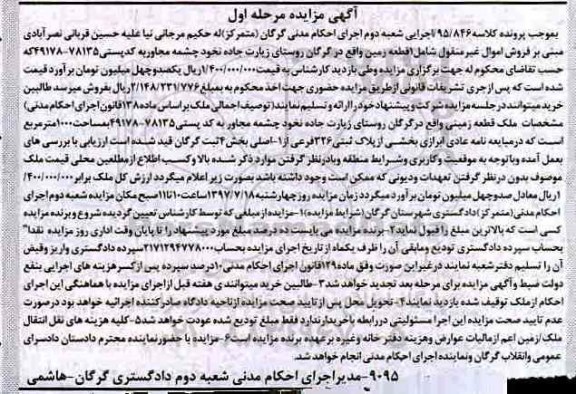 آگهی مزایده مرحله اول
بموجب پرونده کلاسه ۹۵/۸۴۶ ۲اجرایی شعبه دوم اجرای احکام مدنی گرگان (متمرکز)له حکیم مرجانی نیا علیه حسین قربانی نصرآبادی
مبنی بر فروش اموال غیر منقول شامل ۱قطعه زمین واقع در گرگان روستای زیارت جاده نخود چشمه مجاور به کدپستی ۷۸۱۳۵-۴۹۱۷۸که
حسب تقاضای محکوم له جهت برگزاری مزایده وطی بازدید کارشناس به قیمت ۱/۴۰۰/۰۰۰/۰۰۰ریال یکصدوچهل میلیون تومان برآورد قیمت
شده است که پس از جری تشریفات قانونی از طریق مزایده حضوری جهت اخذ محکوم به بمبلغ ۲/۱۴۸/۲۳۱/۷۷۶ریال بفروش میرسد طالبین
خرید میتوانند در جلسه مزایده شرکت و پیشنهاد خود را ارائه و تسلیم نمایند(توصیف اجمالی ملک براساس ماده ۱۳۸قانون اجرای احکام مدنی)
مشخصات ملک قطعه زمینی واقع در گرگان روستای زیارت جاده نخود چشمه مجاور به کد پستی ۷۸۱۳۵-۴۹۱۷۸بمساحت ۱۰۰۰مترمربع
است که در مبایعه نامه عادی ابرازی بخشی از پلاک ثبتی ۳۲۶فرعی از ۱-اصلی بخش ۴ثبت گرگان قید شده است ارزیابی با بررسی های
بعمل آمده وباتوجه به موقعیت وکاربری وشرایط منطقه وبادرنظر گرفتن موارد ذکر شده بالا وکسب اطلاع از مطلعین محلی قیمت ملک
موصوف بدون در نظر گرفتن تعهدات ودیونی که ممکن است وجود داشته باشد بصورت زیر اعلام میگردد ارزش کل ملک برابر ۴۰۰/۰۰۰/۰۰۰/
۱ریال معادل صدوچهل میلیون تومان برآورد میگردد زمان مزایده روز چهارشنبه ۱۳۹۷/۷/۱۸ساعت ۱۰تا۱۱صبح مکان مزایده شعبه دوم اجرای
احکام مدنی(متمرکز)دادگستری شهرستان گرگان (شرایط مزایده)۱-مزایده از مبلغی که توسط کارشناس تعیین گردیده شروع وبرنده مزایده
کسی است که بالاترین مبلغ را قبول نماید۲-برنده مزایده می بایست ده درصد مبلغ مورد پیشنهاد را تا پایان وقت اداری روز مزایده نقدا"
بحساب سپرده دادگستری تودیع ومابقی آن را ظرف یکماه از تاریخ اجرای مزایده بحساب ۲۱۷۱۲۹۴۷۷۸۰۰۰سپرده دادگستری واریز وقبض
آن را تسلیم دفتر شعبه نمایند درغیر این صورت وفق ماده ۱۲۹قانون اجرای احکام مدنی ۱۰درصد سپرده پس از کسر هزینه های اجرایی بنفع
دولت ضبط وآگهی مزایده برای مرحله بعد تجدید خواهد شد۳-طالبین خرید میتوانند ی هفته قبل از اجرای مزایده با هماهنگی این اجرای
احکام از ملک توقیف شده بازدید نمایند۴-تحویل محل پس از تایید صحت مزایده از ناحیه دادگاه صادر کننده اجرائیه خواهد بود در صورت
عدم تایید صحت مزایده این اجرا مسئولیتی در رابطه باخریدار ندارد فقط مبلغ تودیع شده عودت خواهد شد۵-کلیه هزینه های نقل انتقال
ملک/زمین اعم از مالیات عوارض وهزینه دفتر خانه وغیره بر عهده برنده مزایده است۶-مزایده با حضور نماینده محترم دادستان دادسرای
عمومی وانقلاب گرگان ونماینده اجرای احکام مدنی انجام خواهد شد.
۹۰۹۵-مدیر اجرای احکام مدنی شعبه دوم دادگستری گرگان-هاشمی